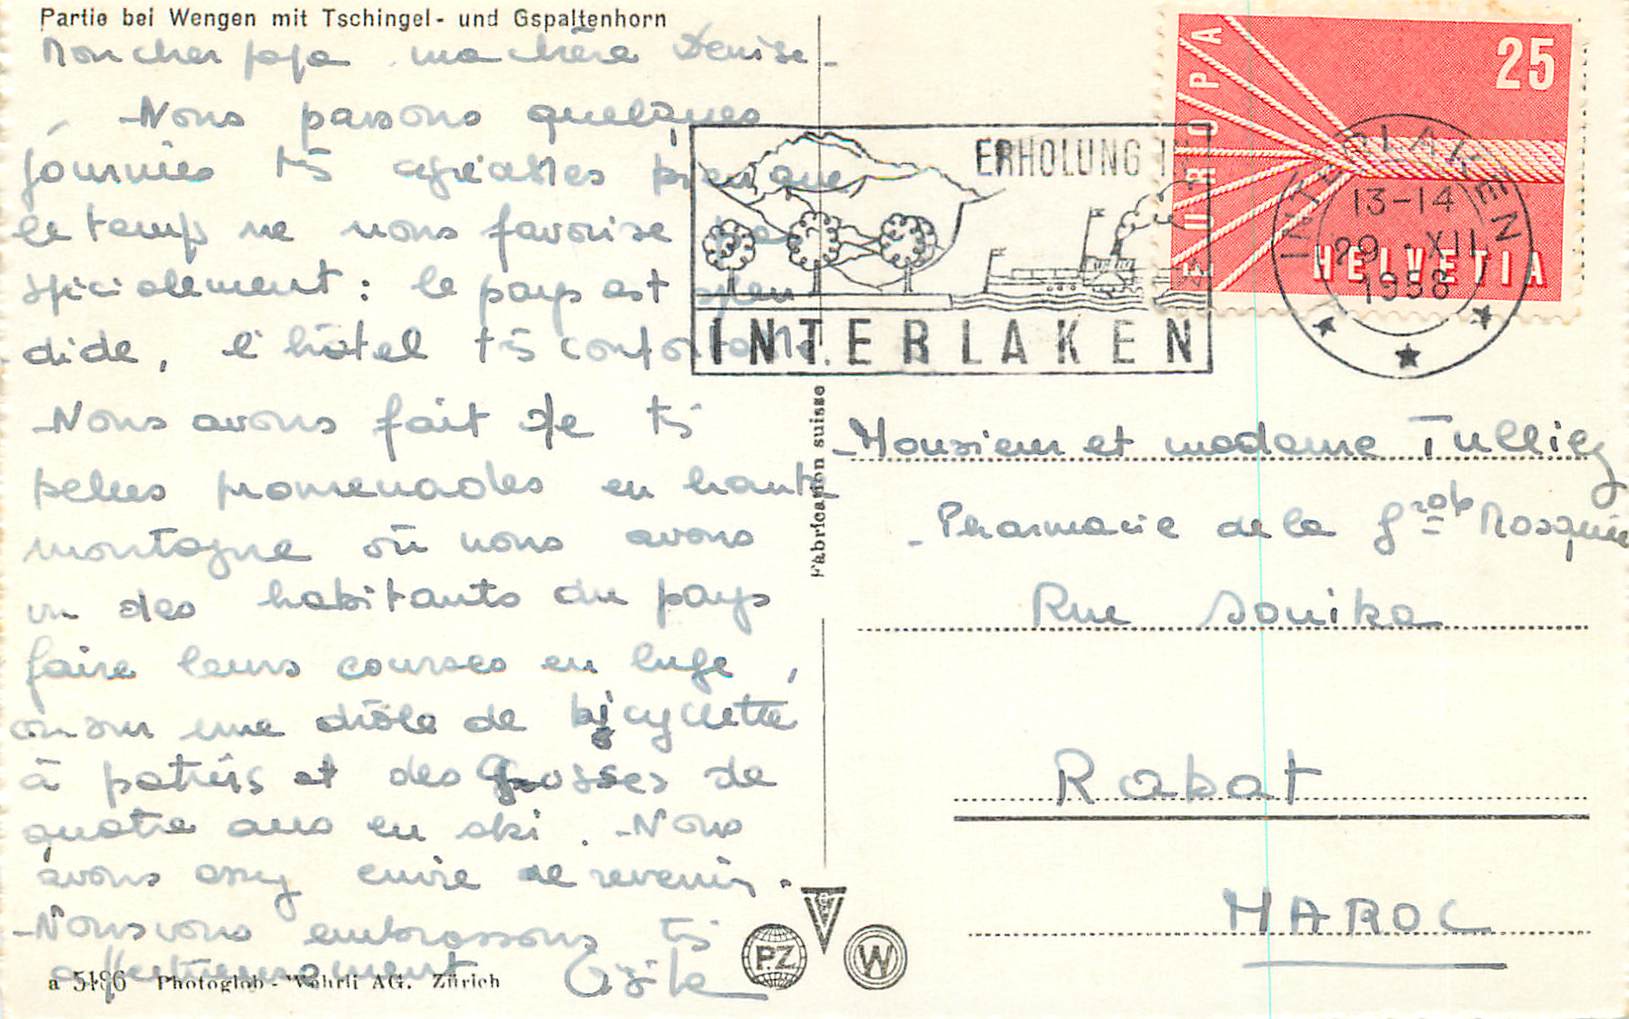 Partie bei Wengen mit Tschingel- und Gspaltenhorn
Mon cher papa, ma chère Denise -
Nous passons quelques
journées très agréables bien que
le temps ne nous favorise pas
spécialement : le pays est splen
dide, l'hôtel très confortable.
Nous avons fait de très
belles promenades en haute
montagne où nous avons
vu des habitants du pays
faire leurs courses en luge,
ou sur une drôle de bicyclette
à patins et des gosses de
quatre ans en ski. Nous
avons assez envie de revenir.
Nous vous embrassons très
affectueusement
a 5186 Photoglob-Wehrli AG. Zürich
Fabrication suisse
P.Z.
W
ERHOLUNG
INTERLAKEN
EUROPA
25
HELVETIA
INTERLAKEN
13-14
29.XII
1958
Monsieur et madame Tulliez
Pharmacie de la Grde Mosquée
Rue Souika
Rabat
MAROC